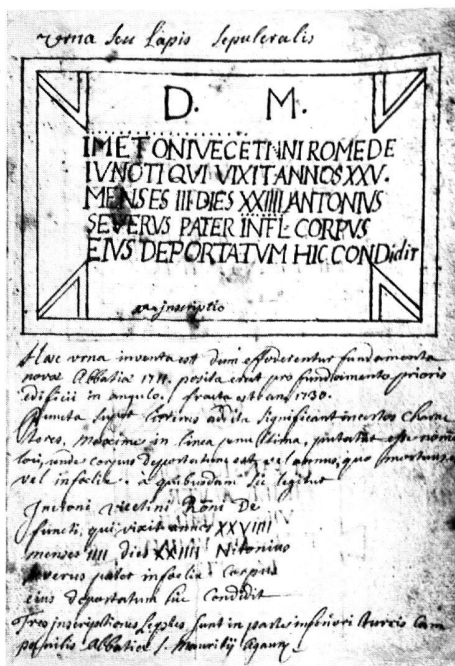 Urna seu Lapis Sepulcralis
D. M.
IMETONIVECETINNI ROMEDE
IVNOTI QVI VIXIT ANNOS XXV.
MENSES III DIES XXIIII ANTONIVS
SEVERVS PATER INFL. CORPVS
EIVS DEPORTATVM HIC CONDidit
inscriptio
Haec urna inventa est dum effoderentur fundamenta
novae Abbatiae 1711. posita erat pro fundamento prioris
aedificii in angulo. fracta est an. 1730.
Puncta supra literas addita significant incertos charac
teres, maxime in linea penultima, putatur esse nomen
loci, unde corpus deportatum est, vel annus, quo mortuus
vel infoelix. a quibusdam sic legitur
Vecetini Romae De
functi, qui vixit annos XXVIIII
menses IIII dies XXIIII Nitonius
Severus pater infoelix corpus
eius deportatum hic condidit
Tres inscriptiones sunt in parte inferiori turris Cam
panilis Abbatiae S. Mauritij Agaun.